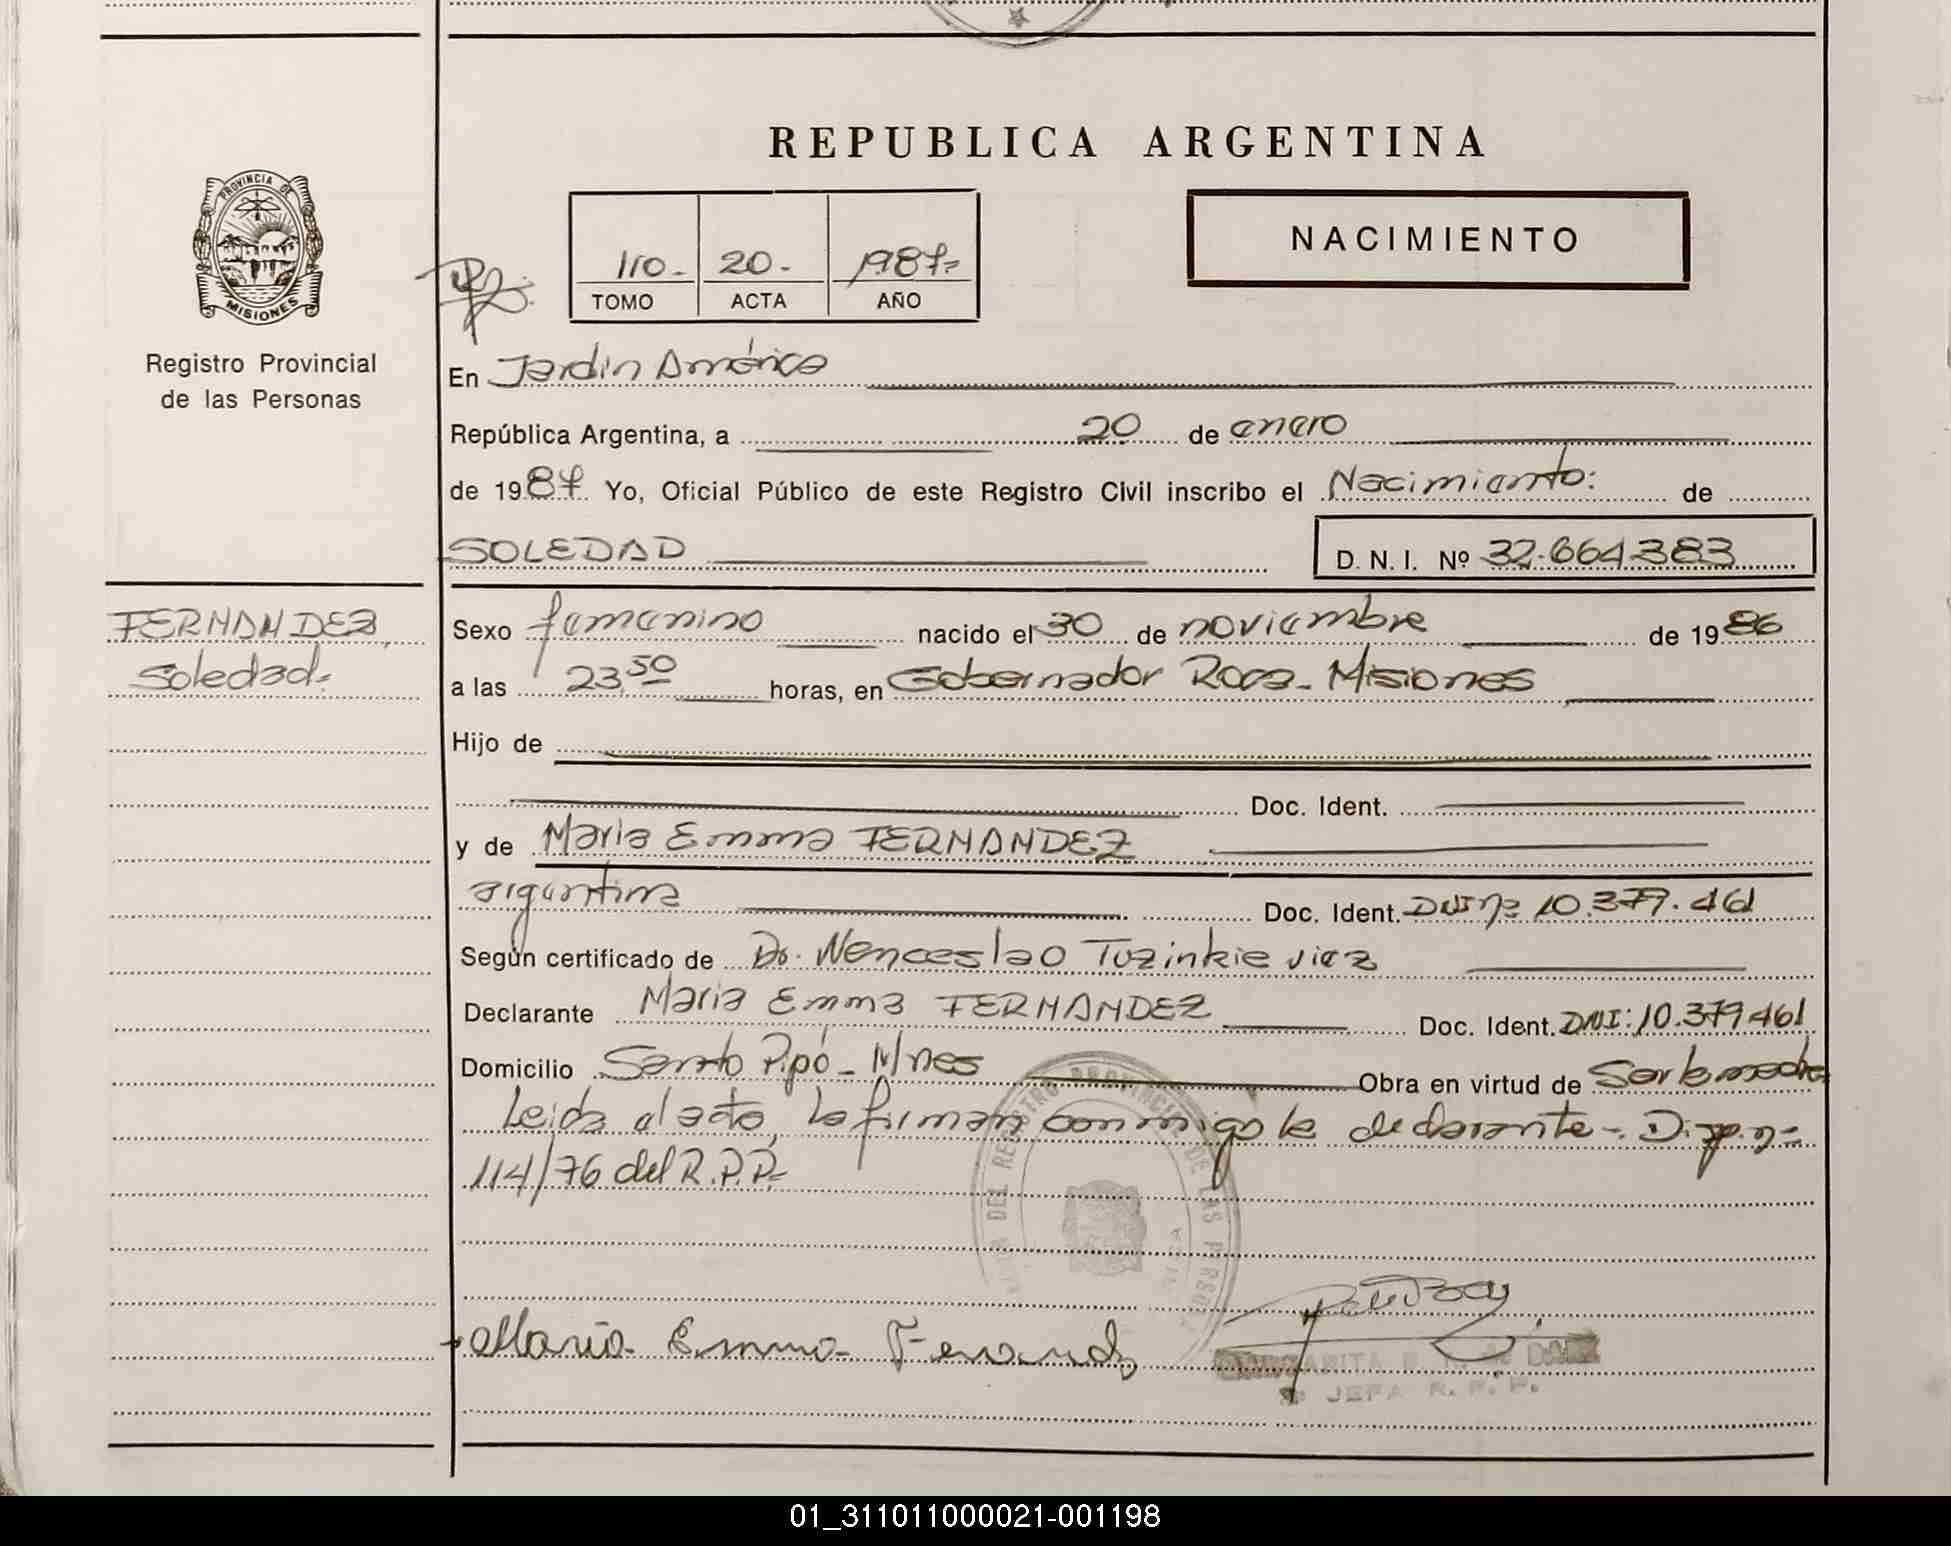 REPUBLICA ARGENTINA
NACIMIENTO
PROVINCIA DE
MISIONES
Registro Provincial
de las Personas
110.- 20.- 1987=
TOMO ACTA AÑO
En Jardín América
República Argentina, a 20 de enero
de 1987 Yo, Oficial Público de este Registro Civil inscribo el Nacimiento: de
SOLEDAD D. N. I. Nº 32.664.383
FERNANDEZ
Soledad.=
Sexo femenino nacido el 30 de noviembre de 1986
a las 23,50 horas, en Gobernador Roca - Misiones
Hijo de
Doc. Ident.
y de Maria Emma FERNANDEZ
argentina Doc. Ident. DNI nº 10.379.461
Según certificado de Dr. Wenceslao Tuzinkievicz
Declarante Maria Emma FERNANDEZ Doc. Ident. DNI: 10.379461
Domicilio Santo Pipó - Mnes Obra en virtud de Ser la madre
Leida el acta, la firman conmigo la declarante.- Disp. nº
114/76 del R.P.P.-
DEL REGISTRO PROVINCIAL DE LAS PERSONAS
Maria Emma Fernandz
JEFA R. P. P.
01_311011000021-001198